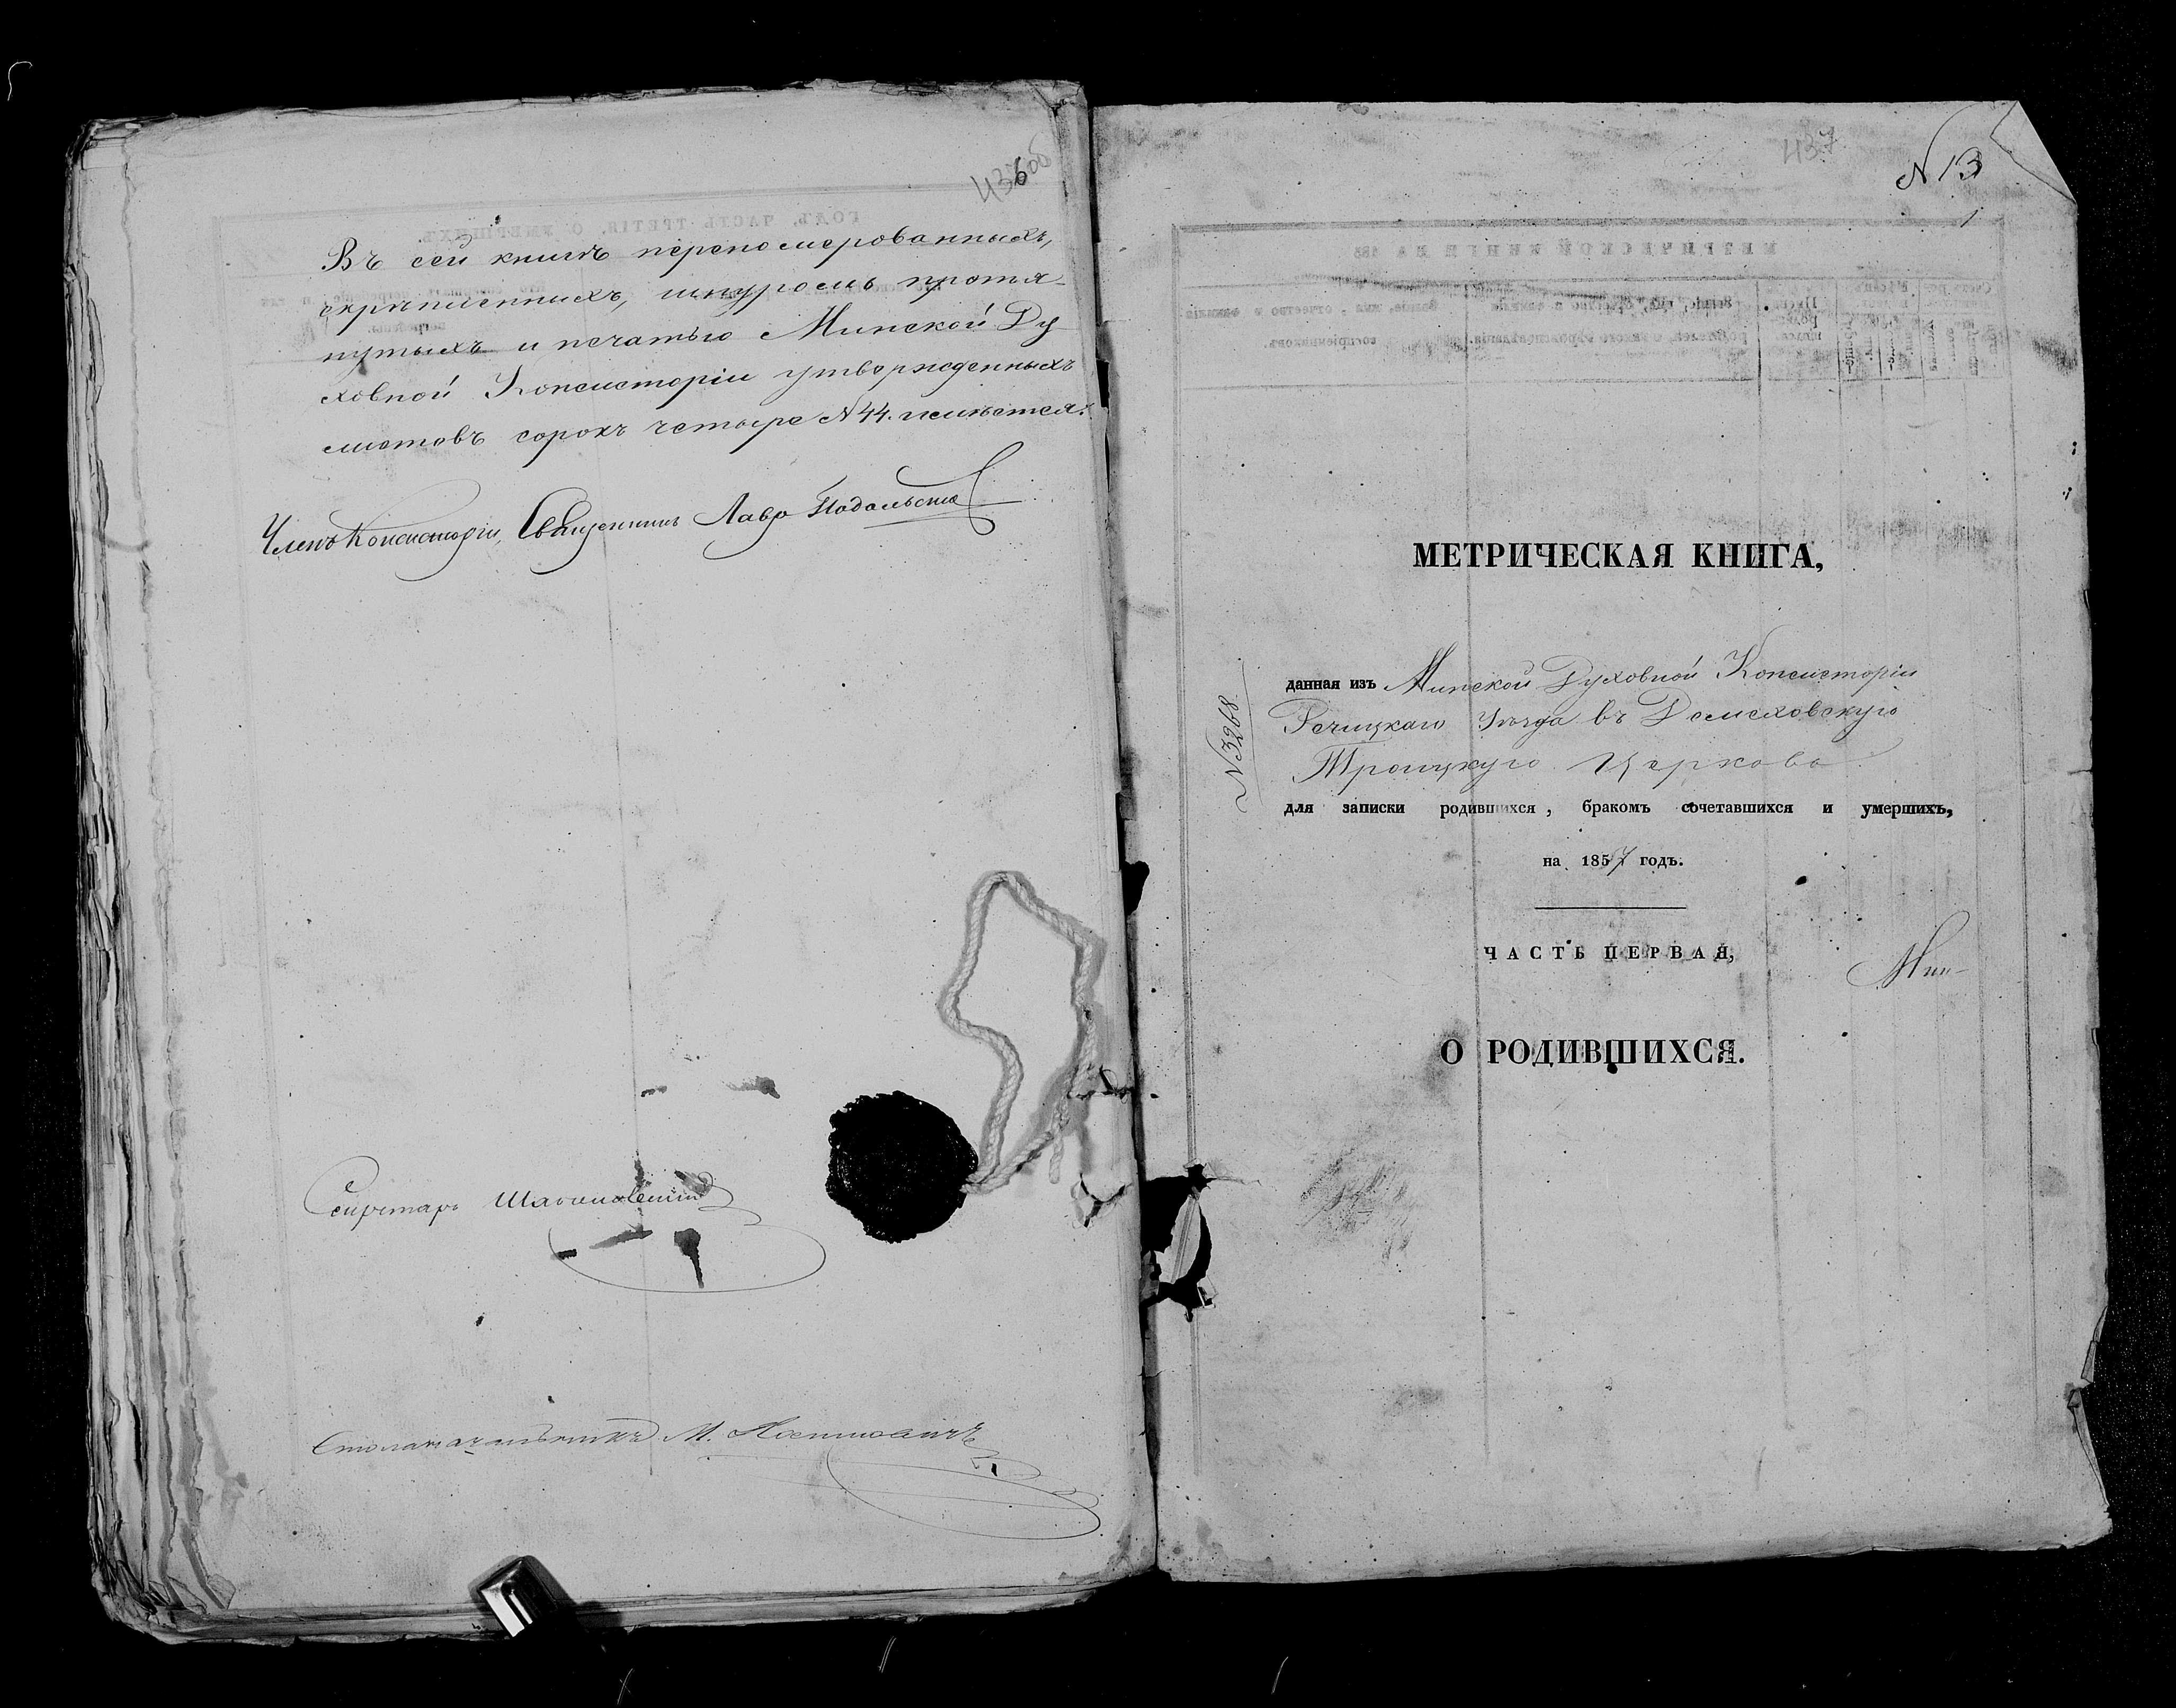 436об
Въ сей книгѣ переномерованныхъ,
скрѣпленныхъ, шнуромъ протя-
нутыхъ и печатью Минской Ду
ховной Консисторіи утвержденныхъ
листовъ сорокъ четыре N 44. имѣется.
Членъ Консисторіи, Священникъ Лавр Подольскій
Секретарь
Столоначальникъ М.
437
N 13
1
МЕТРИЧЕСКАЯ КНИГА,
N 3268
данная изъ Минской Духовной Консисторіи
Речицкаго Уѣзда въ Демеховскую
Троицкую Церковь
для записки родившихся, бракомъ сочетавшихся и умершихъ,
на 1857 годъ.
ЧАСТЬ ПЕРВАЯ,
Мин-
О РОДИВШИХСЯ.